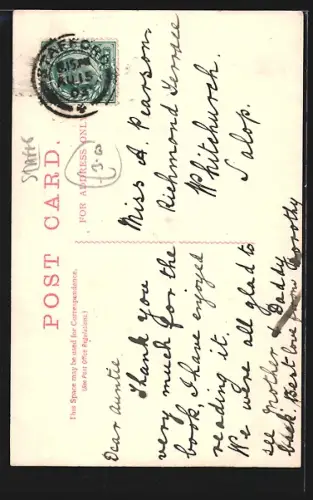 POST CARD.
This Space may be used for Correspondence.
(See Post Office Regulations.)
FOR ADDRESS ONLY
STAFFORD
AU 15
Staffs
3-00
Dear Auntie
Thank you
very much for the
book, I have enjoyed
reading it.
We were all glad to
see Mother & Daddy
back. Best love from Dorothy
Miss A. Pearson
Richmond Terrace
Whitchurch.
Salop.